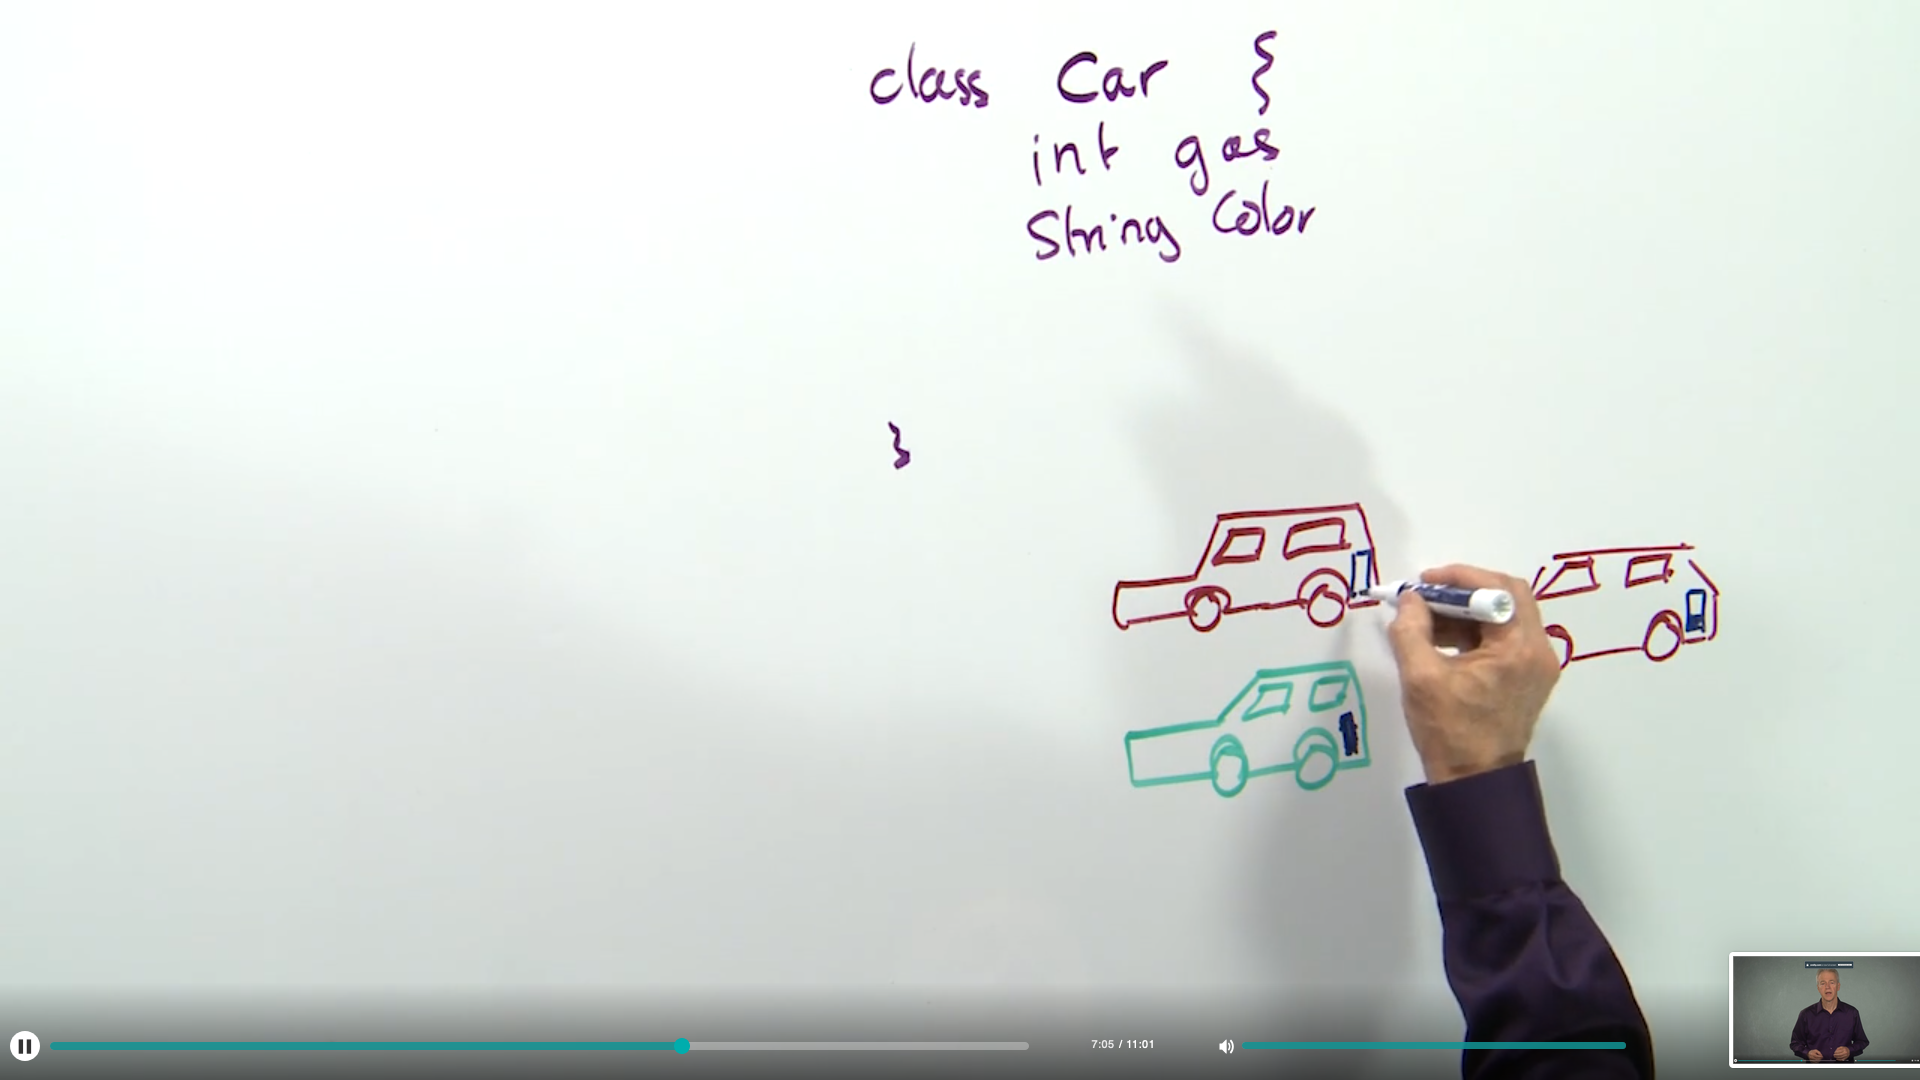 class Car {
int gas
String Color
}
7:05 / 11:01